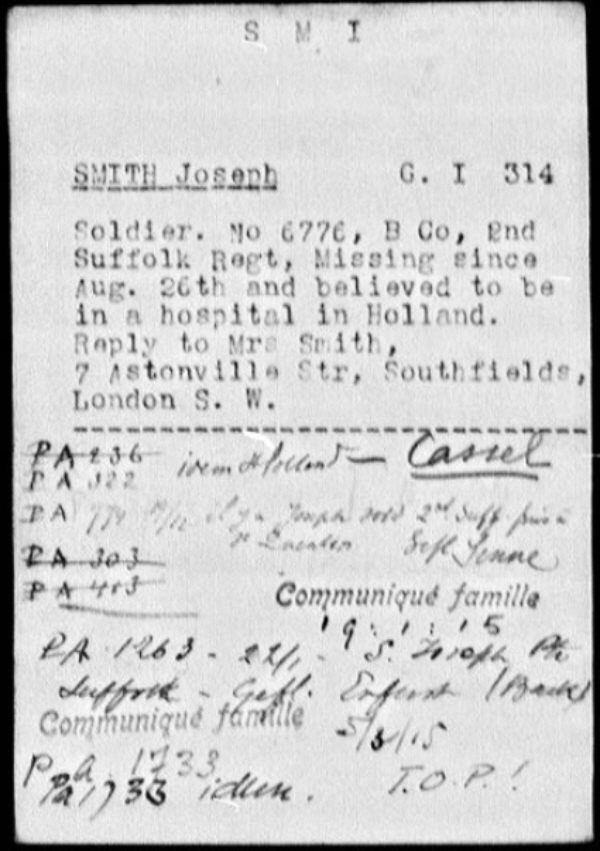 S M I
SMITH Joseph G. I 314
Soldier. No 6776, B Co, 2nd
Suffolk Regt, Missing since
Aug. 26th and believed to be
in a hospital in Holland.
Reply to Mrs Smith,
7 Astonville Str, Southfields,
London S. W.
PA 236 idem Holland — Cassel
PA 322
PA 779 il y a Joseph 2nd Suff
PA 303
PA 403
Communiqué famille
19.1.15
PA 1263 - 22/1 - S. Joseph Pte
Suffolk - Gefl. Erfurt
Communiqué famille
5/3/15
Pa 1733
Pa 1733 idem. T.O.P.!